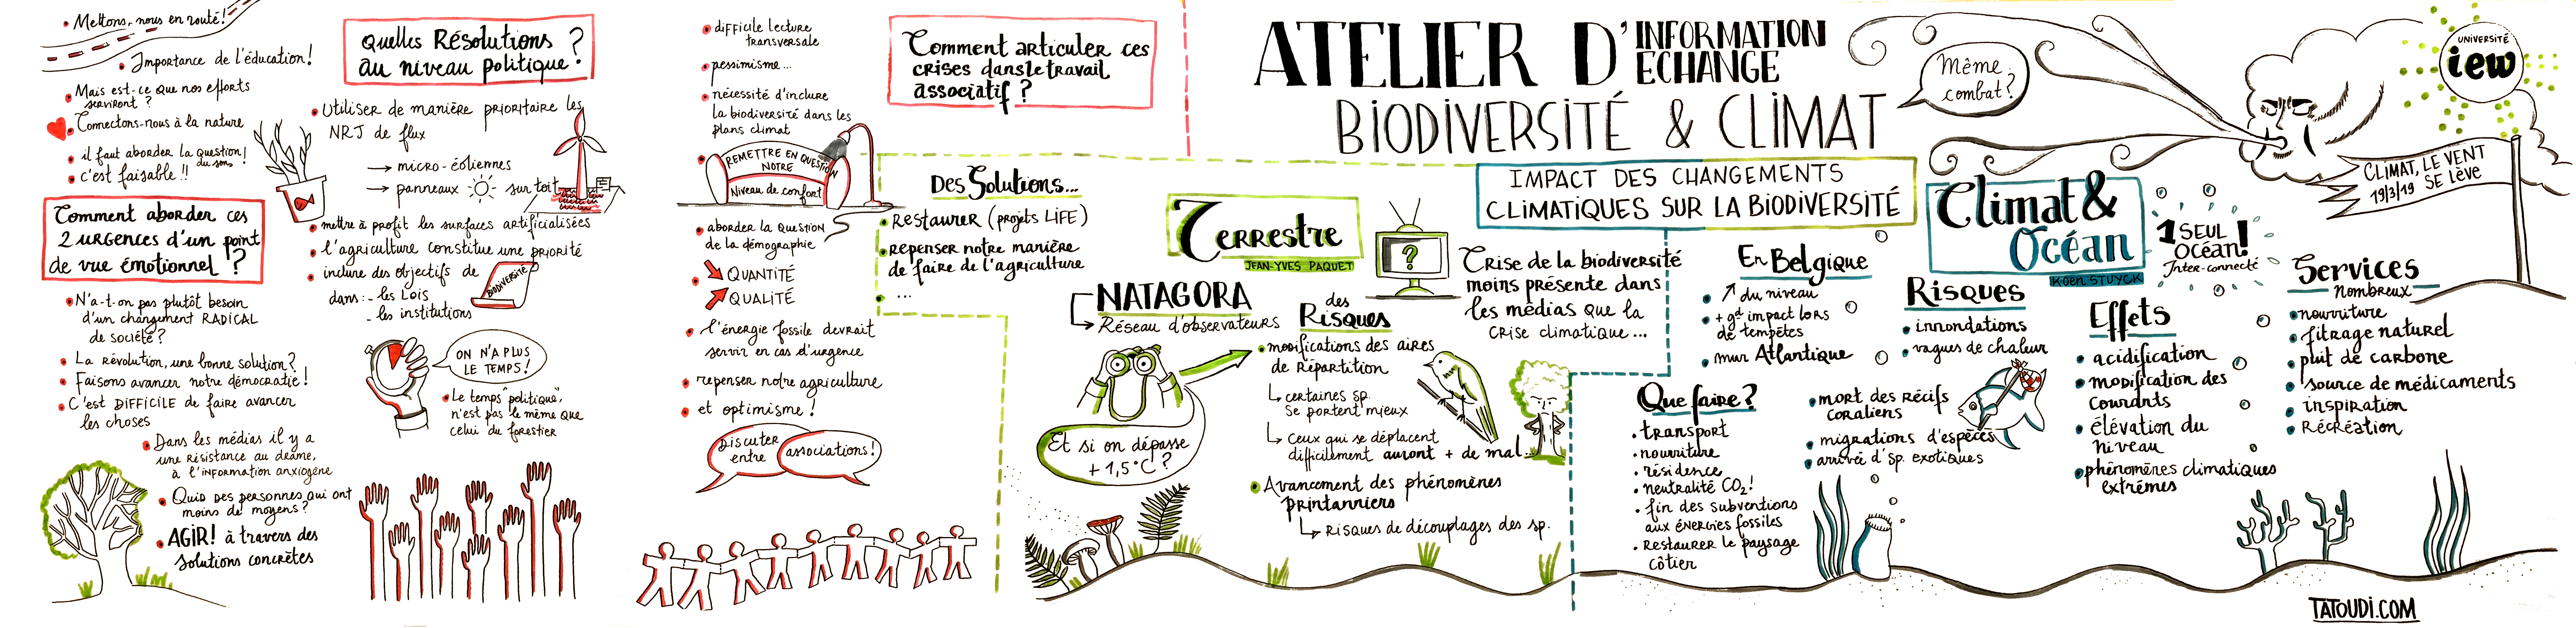 Mettons, nous en route!
Importance de l'éducation!
Mais est-ce que nos efforts
serviront ?
Connectons-nous à la nature
il faut aborder la question!
du sens
c'est faisable !!
Comment aborder ces
2 URGENCES d'un point
de vue émotionnel ?
N'a-t-on pas plutôt besoin
d'un changement RADICAL
de société ?
La révolution, une bonne solution ?
Faisons avancer notre démocratie !
C'est DIFFICILE de faire avancer
les choses
Dans les médias il y a
une résistance au drame,
à l'information anxiogène
Quid des personnes qui ont
moins de moyens ?
AGIR! à travers des
solutions concrètes
Quelles Résolutions
au niveau politique ?
Utiliser de manière prioritaire les
NRJ de flux
→ micro-éoliennes
→ panneaux sur toit
mettre à profit les surfaces artificialisées
l'agriculture constitue une priorité
inclure des objectifs de
BIODIVERSITÉ
dans : - les Lois
- les institutions
ON N'A PLUS
LE TEMPS !
Le temps "politique",
n'est pas le même que
celui du forestier
difficile lecture
transversale
pessimisme...
nécessité d'inclure
la biodiversité dans les
plans climat
REMETTRE EN QUESTION
NOTRE
Niveau de confort
aborder la question
de la démographie
QUANTITÉ
QUALITÉ
l'énergie fossile devrait
servir en cas d'urgence
repenser notre agriculture
et optimisme !
Discuter
entre
associations !
Comment articuler ces
crises dans le travail
associatif ?
Des Solutions...
Restaurer (projets LIFE)
repenser notre manière
de faire de l'agriculture
...
ATELIER D'INFORMATION
ECHANGE
BIODIVERSITÉ & CLIMAT
Même
combat ?
UNIVERSITÉ
iew
CLIMAT, LE VENT
SE LÈVE
19/3/19
IMPACT DES CHANGEMENTS
CLIMATIQUES SUR LA BIODIVERSITÉ
Terrestre
JEAN-YVES PAQUET
?
Crise de la biodiversité
moins présente dans
les médias que la
crise climatique ...
NATAGORA
Réseau d'observateurs
Et si on dépasse
+ 1,5°C ?
des
Risques
modifications des aires
de Répartition
certaines sp.
se portent mieux
Ceux qui se déplacent
difficilement auront + de mal...
Avancement des phénomènes
printanniers
Risques de découplages des sp.
Climat &
Océan
KOEN STUYCK
1 SEUL
OCÉAN !
Inter-connecté
En Belgique
↗ du niveau
+ gd impact lors
de tempêtes
mur Atlantique
Que faire ?
transport
nourriture
résidence
neutralité CO2 !
fin des subventions
aux énergies fossiles
Restaurer le paysage
côtier
Risques
innondations
vagues de chaleur
mort des récifs
coraliens
migrations d'espèces
arrivée d'sp. exotiques
Effets
acidification
modification des
courants
élévation du
niveau
phénomènes climatiques
extrêmes
Services
nombreux
nourriture
fitrage naturel
puit de carbone
source de médicaments
inspiration
Récréation
TATOUDI.COM